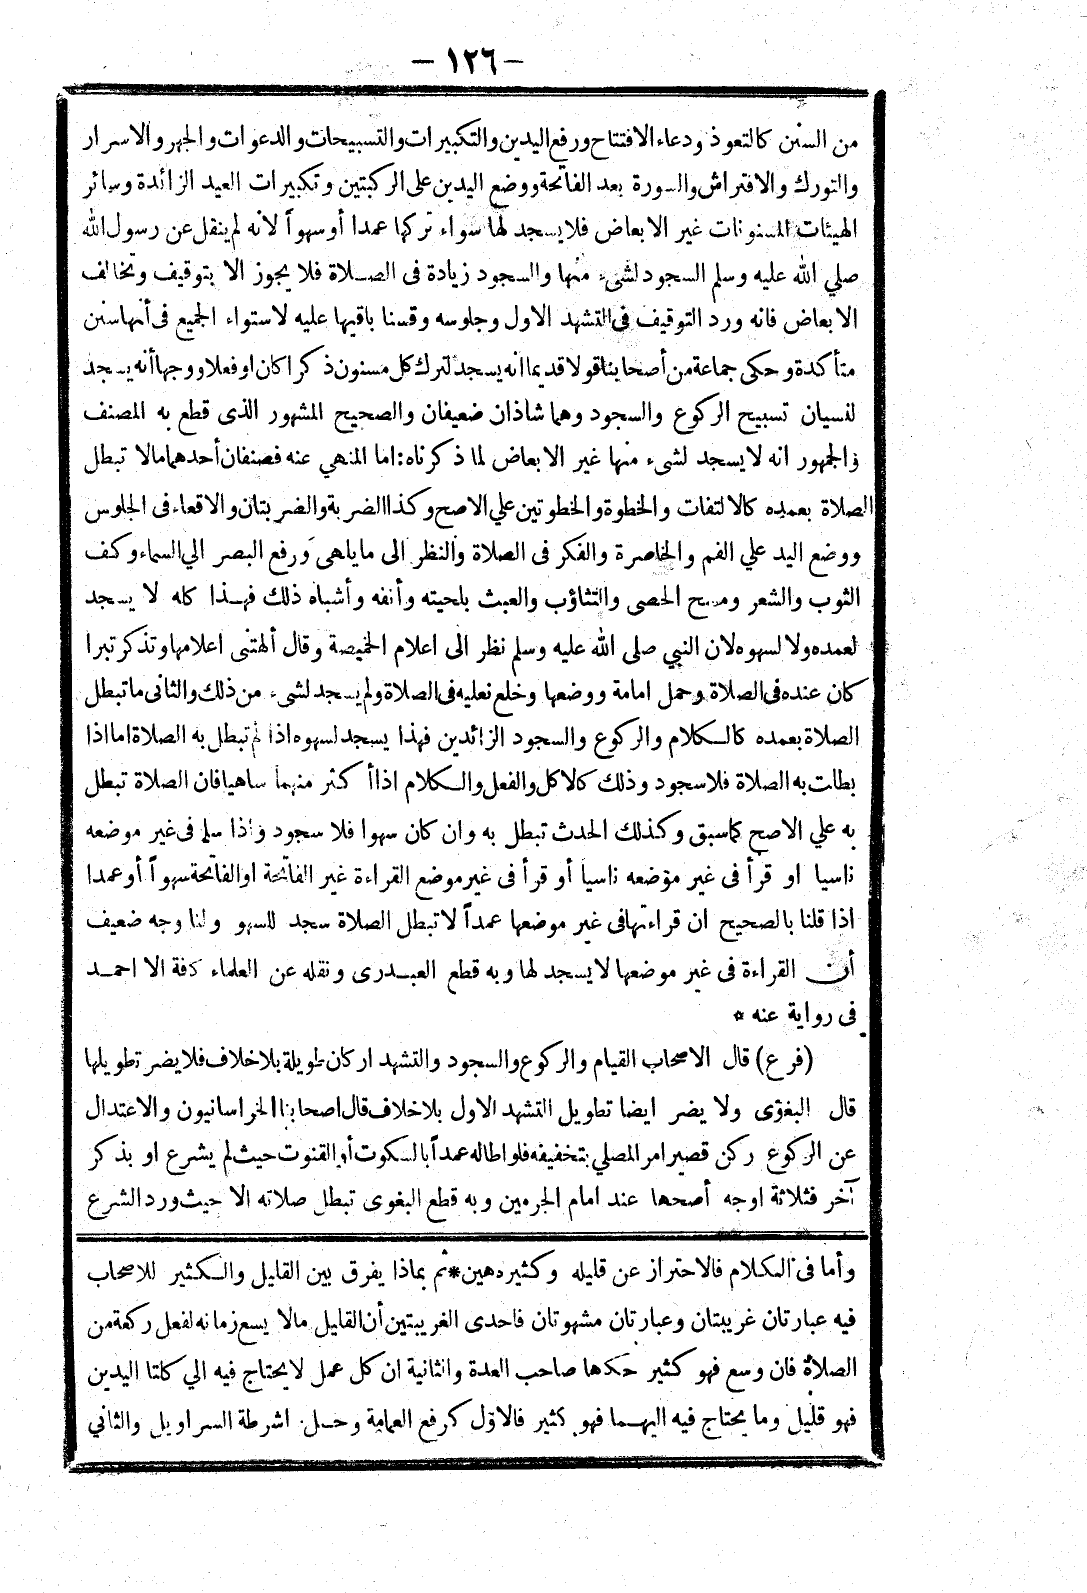 - ١٢٦ -
من السنن كالتعوذ ودعاء الافتتاح ورفع اليدين والتكبيرات والتسبيحات والدعوات والجهر والاسرار
والتورك والافتراش والسورة بعد الفاتحة ووضع اليدين على الركبتين وتكبيرات العيد الزائدة وسائر
الهيئات المسنونات غير الابعاض فلا يسجد لها سواء تركها عمدا أو سهواً لانه لم ينقل عن رسول الله
صلي الله عليه وسلم السجود لشىء منها والسجود زيادة فى الصلاة فلا يجوز الا بتوقيف وتخالف
الابعاض فانه ورد التوقيف في التشهد الاول وجلوسه وقسنا باقيها عليه لاستواء الجميع فى أنها سنن
متأكدة وحكى جماعة من أصحابنا قولا قديما انه يسجد لترك كل مسنون ذكرا كان او فعلا ووجها أنه يسجد
لنسيان تسبيح الركوع والسجود وهما شاذان ضعيفان والصحيح المشهور الذى قطع به المصنف
والجمهور انه لا يسجد لشىء منها غير الابعاض لما ذكرناه: اما المنهي عنه فصنفان أحدهما مالا تبطل
الصلاة بعمده كالالتفات والخطوة والخطوتين علي الاصح وكذا الضربة والضربتان والاقعاء فى الجلوس
ووضع اليد علي الفم والخاصرة والفكر فى الصلاة والنظر الى مايلهى ورفع البصر الي السماء وكف
الثوب والشعر ومسح الحصى والتثاؤب والعبث بلحيته وأنفه وأشباه ذلك فهذا كله لا يسجد
لعمده ولا لسهوه لان النبي صلى الله عليه وسلم نظر الى اعلام الخميصة وقال ألهتنى اعلامها وتذكر تبرا
كان عنده فى الصلاة وحمل امامة ووضعها وخلع نعليه فى الصلاة ولم يسجد لشىء من ذلك والثانى ما تبطل
الصلاة بعمده كالكلام والركوع والسجود الزائدين فهذا يسجد لسهوه اذا لم تبطل به الصلاة اما اذا
بطلت به الصلاة فلا سجود وذلك كالاكل والفعل والكلام اذا أكثر منهما ساهيا فان الصلاة تبطل
به علي الاصح كما سبق وكذلك الحدث تبطل به وان كان سهوا فلا سجود واذا سلم فى غير موضعه
ناسيا او قرأ فى غير موضعه ناسياً أو قرأ فى غير موضع القراءة غير الفاتحة او الفاتحة سهواً أو عمدا
اذا قلنا بالصحيح ان قراءتها فى غير موضعها عمداً لا تبطل الصلاة سجد للسهو ولنا وجه ضعيف
أن القراءة فى غير موضعها لا يسجد لها وبه قطع العبدرى ونقله عن العلماء كافة الا احمد
فى رواية عنه *
(فرع) قال الاصحاب القيام والركوع والسجود والتشهد اركان طويلة بلا خلاف فلا يضر تطويلها
قال البغوى ولا يضر ايضا تطويل التشهد الاول بلا خلاف قال اصحابنا الخراسانيون والاعتدال
عن الركوع ركن قصير امر المصلي بتخفيفه فلو اطاله عمداً بالسكوت أو القنوت حيث لم يشرع او بذكر
آخر فثلاثة اوجه أصحها عند امام الحرمين وبه قطع البغوى تبطل صلاته الا حيث ورد الشرع
وأما فى الكلام فالاحتراز عن قليله وكثيره هين * ثم بماذا يفرق بين القليل والكثير للاصحاب
فيه عبارتان غريبتان وعبارتان مشهوتان فاحدى الغريبتين أن القليل مالا يسع زمانه لفعل ركعة من
الصلاة فان وسع فهو كثير حكاها صاحب العدة والثانية ان كل عمل لا يحتاج فيه الي كلتا اليدين
فهو قليل وما يحتاج فيه اليهما فهو كثير فالاول كرفع العمامة وحل اشرطة السراويل والثاني